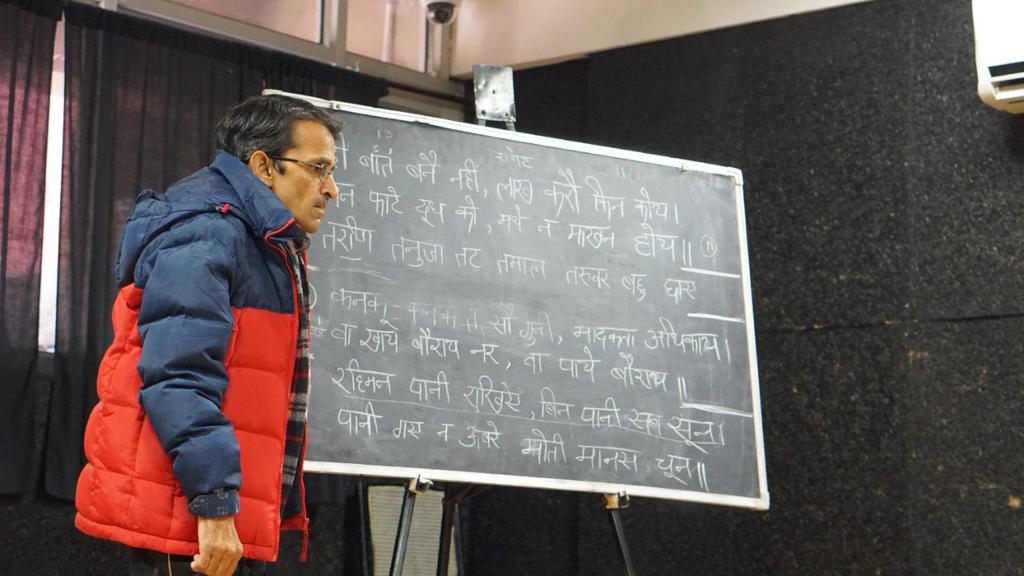 13 सोरठ 11
बात बनै नहीं, लाख करौ किन कोय।
फाटे दूध को, मथे न माखन होय॥ ①
तरणि तनुजा तट तमाल तरुवर बहु छाए
कनक-कनक ते सौ गुनी, मादकता अधिकाय।
वा खाये बौराय नर, वा पाये बौराय॥
रहिमन पानी राखिये, बिन पानी सब सून।
पानी गए न ऊबरे मोती मानस चून॥